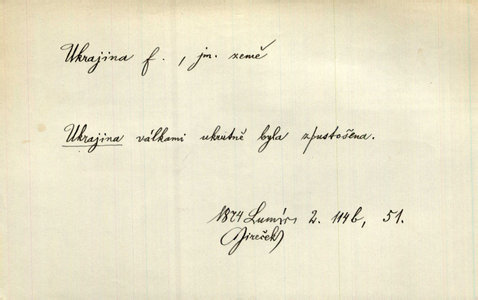 Ukrajina f., jm. země
Ukrajina válkami ukrutně byla zpustošena.
1874 Lumír 2. 114b, 51.
(Jireček)